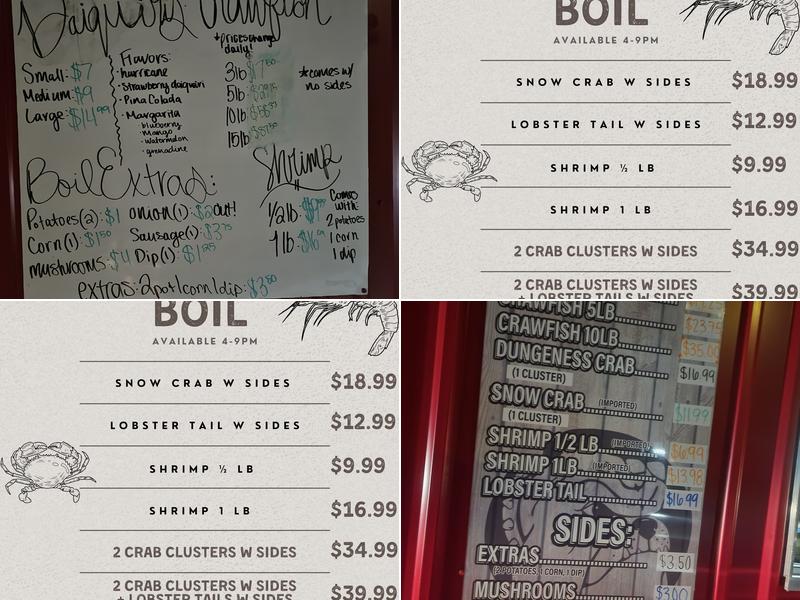 Daiquiris Crawfish
*prices change
daily!
Small: $7
Medium: $9
Large: $14.99
Flavors:
• hurricane
• Strawberry daiquiri
• Pina Colada
• Margarita
• blueberry
• mango
• watermelon
• grenadine
3lb
5lb
10lb
15lb
*comes w/
no sides
Boil Extras:
Potatoes(2): $1
Onion(1): $2
out!
Corn(1): $1.50
Sausage(1):
mushrooms: $4
Dip(1):
extras: 2pot/corn/dip: $3.50
Shrimp
1/2lb:
1 lb:
Comes
with:
2 potatoes
1 corn
1 dip
BOIL
AVAILABLE 4-9PM
SNOW CRAB W SIDES $18.99
LOBSTER TAIL W SIDES $12.99
SHRIMP ½ LB $9.99
SHRIMP 1 LB $16.99
2 CRAB CLUSTERS W SIDES $34.99
2 CRAB CLUSTERS W SIDES
+ LOBSTER TAILS W SIDES $39.99
BOIL
AVAILABLE 4-9PM
SNOW CRAB W SIDES $18.99
LOBSTER TAIL W SIDES $12.99
SHRIMP ½ LB $9.99
SHRIMP 1 LB $16.99
2 CRAB CLUSTERS W SIDES $34.99
2 CRAB CLUSTERS W SIDES
+ LOBSTER TAILS W SIDES $39.99
CRAWFISH 5LB $23.75
CRAWFISH 10LB $35.00
DUNGENESS CRAB $16.99
(1 CLUSTER)
SNOW CRAB (IMPORTED) $11.99
(1 CLUSTER)
SHRIMP 1/2 LB (IMPORTED) $6.99
SHRIMP 1LB (IMPORTED) $13.98
LOBSTER TAIL $16.99
SIDES:
EXTRAS $3.50
(2 POTATOES, 1 CORN, 1 DIP)
MUSHROOMS $3.00